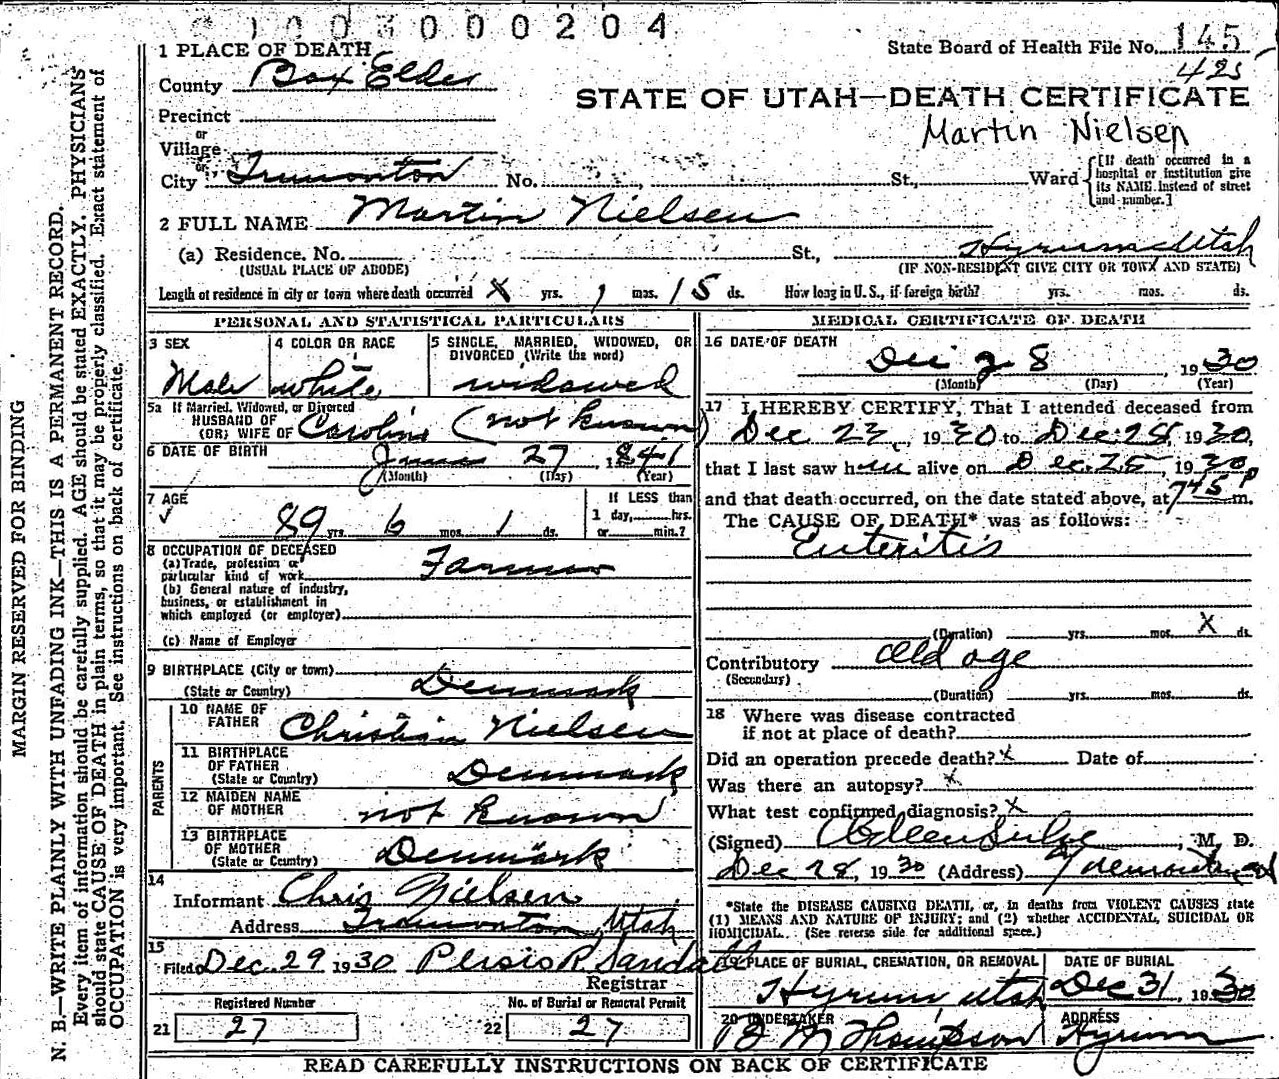 0 0 3 0 0 0 2 0 4
1 PLACE OF DEATH
County Box Elder
Precinct
or
Village
or
City Tremonton No. St., Ward
[If death occurred in a
hospital or institution give
its NAME instead of street
and number.]
State Board of Health File No. 145
425
STATE OF UTAH—DEATH CERTIFICATE
Martin Nielsen
2 FULL NAME Martin Nielsen
(a) Residence. No. St., Hyrum Utah
(USUAL PLACE OF ABODE) (IF NON-RESIDENT GIVE CITY OR TOWN AND STATE)
Length of residence in city or town where death occurred X yrs. 1 mos. 15 ds. How long in U. S., if foreign birth? yrs. mos. ds.
PERSONAL AND STATISTICAL PARTICULARS
3 SEX
Male
4 COLOR OR RACE
white
5 SINGLE, MARRIED, WIDOWED, OR
DIVORCED (Write the word)
widowed
5a If Married, Widowed, or Divorced
HUSBAND OF
(OR) WIFE OF Caroline (not known)
6 DATE OF BIRTH June 27, 1841
(Month) (Day) (Year)
7 AGE
89 yrs. 6 mos. 1 ds.
If LESS than
1 day, hrs.
or min.?
8 OCCUPATION OF DECEASED
(a) Trade, profession or
particular kind of work Farmer
(b) General nature of industry,
business, or establishment in
which employed (or employer)
(c) Name of Employer
9 BIRTHPLACE (City or town)
(State or Country) Denmark
PARENTS
10 NAME OF
FATHER Christian Nielsen
11 BIRTHPLACE
OF FATHER
(State or Country) Denmark
12 MAIDEN NAME
OF MOTHER not known
13 BIRTHPLACE
OF MOTHER
(State or Country) Denmark
14
Informant Chris Nielsen
Address Tremonton, Utah
15
Filed Dec. 29 1930 Persis R. Sandall
Registrar
Registered Number
21 27
No. of Burial or Removal Permit
22 27
MEDICAL CERTIFICATE OF DEATH
16 DATE OF DEATH
Dec 28, 1930
(Month) (Day) (Year)
17 I HEREBY CERTIFY, That I attended deceased from
Dec 23, 1930 to Dec. 28, 1930,
that I last saw him alive on Dec. 25, 1930
and that death occurred, on the date stated above, at 745 P m.
The CAUSE OF DEATH* was as follows:
Enteritis
(Duration) yrs. mos. X ds.
Contributory old age
(Secondary)
(Duration) yrs. mos. ds.
18 Where was disease contracted
if not at place of death?
Did an operation precede death? X Date of
Was there an autopsy? X
What test confirmed diagnosis? X
(Signed) , M. D.
Dec 28, 1930 (Address) Tremonton
*State the DISEASE CAUSING DEATH, or, in deaths from VIOLENT CAUSES state
(1) MEANS AND NATURE OF INJURY; and (2) whether ACCIDENTAL, SUICIDAL OR
HOMICIDAL. (See reverse side for additional space.)
19 PLACE OF BURIAL, CREMATION, OR REMOVAL
Hyrum, Utah
DATE OF BURIAL
Dec 31, 1930
20 UNDERTAKER
Thompson
ADDRESS
Hyrum
READ CAREFULLY INSTRUCTIONS ON BACK OF CERTIFICATE
MARGIN RESERVED FOR BINDING
N. B.—WRITE PLAINLY WITH UNFADING INK—THIS IS A PERMANENT RECORD.
Every item of information should be carefully supplied. AGE should be stated EXACTLY. PHYSICIANS
should state CAUSE OF DEATH in plain terms, so that it may be properly classified. Exact statement of
OCCUPATION is very important. See instructions on back of certificate.